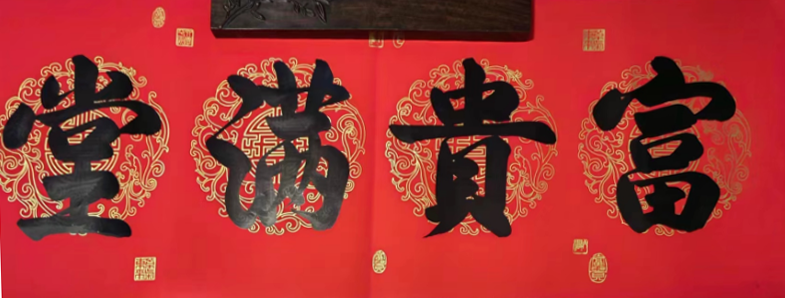 富貴滿堂